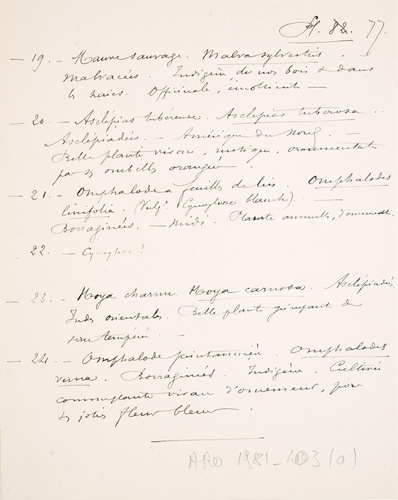 Pl. 82. 77.
— 19. — Mauve sauvage. Malva sylvestris.
Malvacées. Indigène de nos bois & dans
les haies. Officinale, émolliente —
— 20. — Asclépias tubéreuse. Asclepias tuberosa.
Asclépiadées. — Amérique du Nord. —
Belle plante vivace, rustique, ornementale
par ses ombelles orangées.
— 21. — Omphalode à feuilles de lin. Omphalodes
linifolia. (Vulgt Cynoglosse blanche). —
Borraginées. — Midi. Plante annuelle, d'ornement.
22. — Cynoglosse?
— 23. — Hoya charnu. Hoya carnosa. Asclépiadées
Indes orientales. Belle plante grimpant de
serre tempérée. —
— 24. — Omphalode printanière. Omphalodes
verna. Borraginées. Indigène. Cultivée
comme plante vivace d'ornement, pour
ses jolies fleurs bleues.
ARO 1981-403 (a)